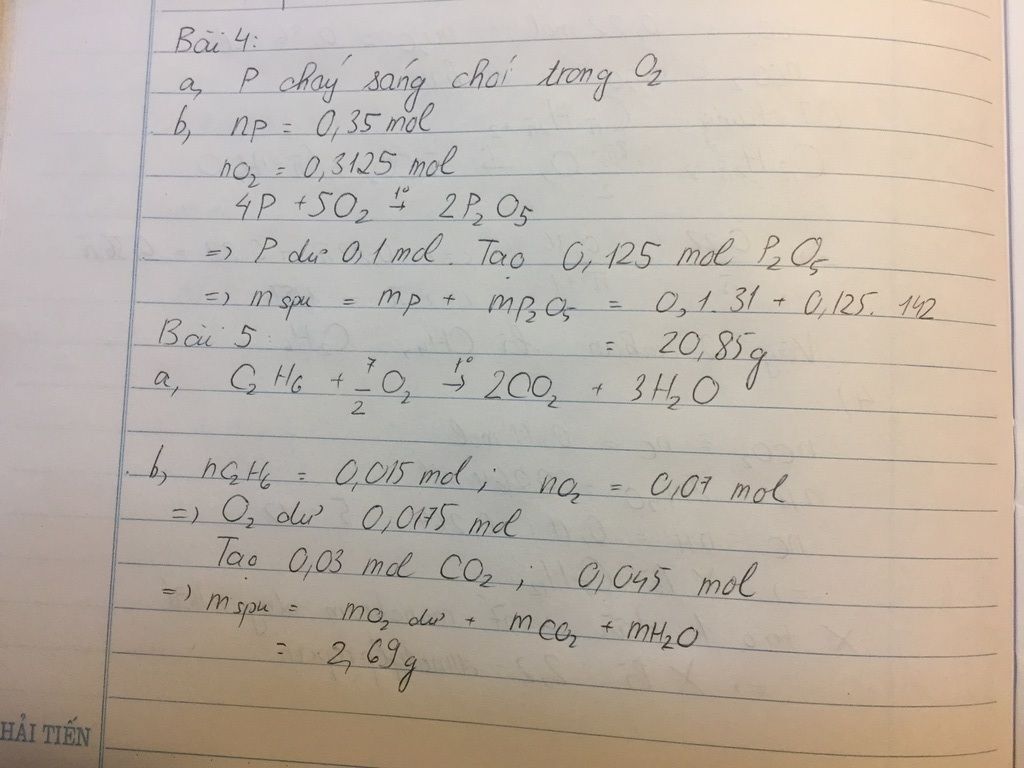 Bài 4:
a, P cháy sáng chói trong O2
b, nP = 0,35 mol
nO2 = 0,3125 mol
4P + 5O2 t°→ 2P2O5
=> P dư 0,1 mol. Tạo 0,125 mol P2O5
=> mspu = mP + mP2O5 = 0,1.31 + 0,125.142
= 20,85g
Bài 5:
a, C2H6 + 7/2 O2 t°→ 2CO2 + 3H2O
b, nC2H6 = 0,015 mol; nO2 = 0,07 mol
=> O2 dư 0,0175 mol
Tạo 0,03 mol CO2; 0,045 mol
=> mspu = mO2 dư + mCO2 + mH2O
= 2,69g
HẢI TIẾN